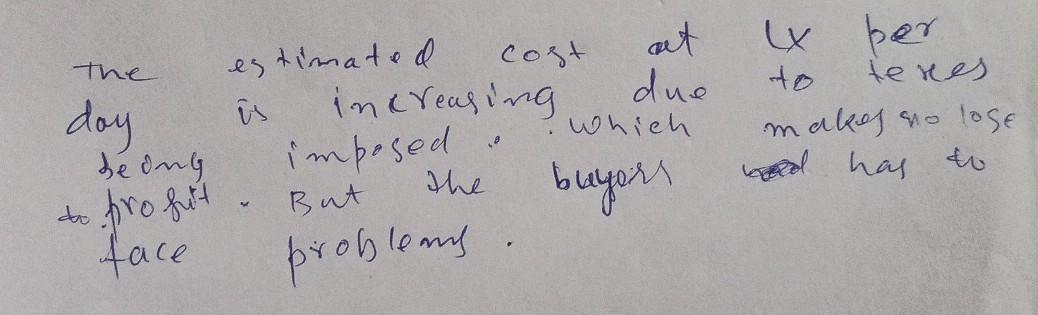 The estimated cost at 4x per
day is increasing due to texes
being imposed. which makes no lose
to profit. But the buyers has to
face problems.